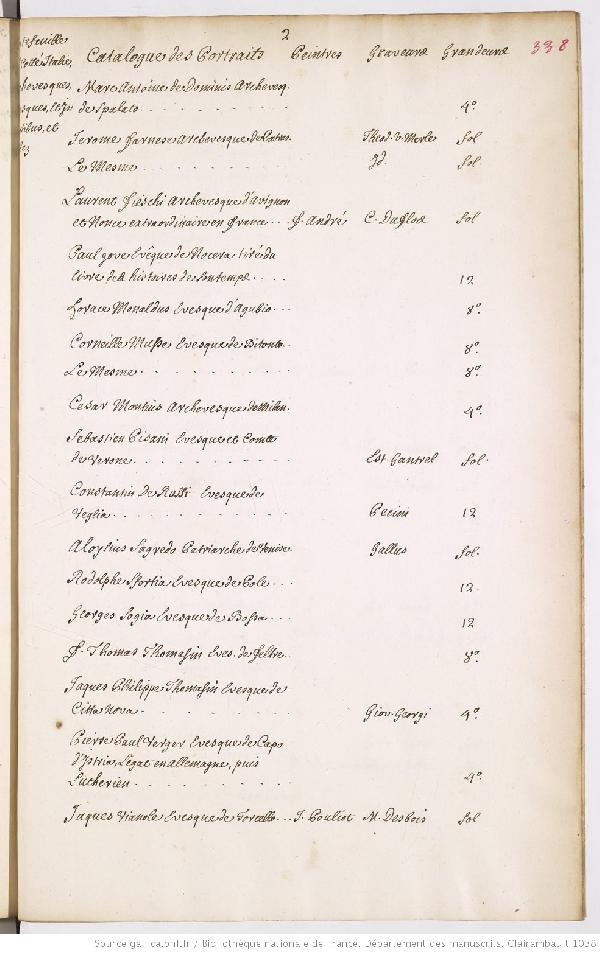 2
338
Catalogue des Portraits Peintres Graveurs Grandeurs
Marc Antoine de Dominis Archevesq.
de Spalato . . . . 4°.
Jerome Farnese Archevesque de Theod. v. Merle fol
Le Mesme . . . . Id. fol.
Laurent Fieschi Archevesque d'Avignon
et Nonce extraordinaire en France . . . J. André C. Duflos fol
Paul Jove Evêque de Nocera tiré du
livre de histoires de son temps . . . . 12
Horace Monaldus Evesque d'Agubio . . . 8°.
Corneille Musse Evesque de Bitonto . . 8°.
Le Mesme . . . . 8°.
Cesar Montius Archevesque de Milan. 4°.
Sebastien Pisani Evesque et Comte
de Verone . . . . Est. Gantrel fol.
Constantin De Rossi Evesque de
Veglia . . . . Pecini 12
Aloysius Sagredo Patriarche de Venise Gallus fol.
Rodolphe Sfortia Evesque de Pole . . . 12.
Georges Sogia Evesque de Bossa . . . 12
F. Thomas Thomasin Eves. de Feltre . . 8°.
Jaques Philippe Thomasin Evesque de
Citta Nova . . . . Giov. Georgi 4°.
Pierre Paul Verger Evesque de Capo
d'Istria Legat en allemagne, puis
Lutherien . . . . 4°.
Jaques Vianole Evesque de Torcello . . . J. Pouliot M. Desbois fol
Source gallica.bnf.fr / Bibliothèque nationale de France. Département des manuscrits. Clairambault 1038